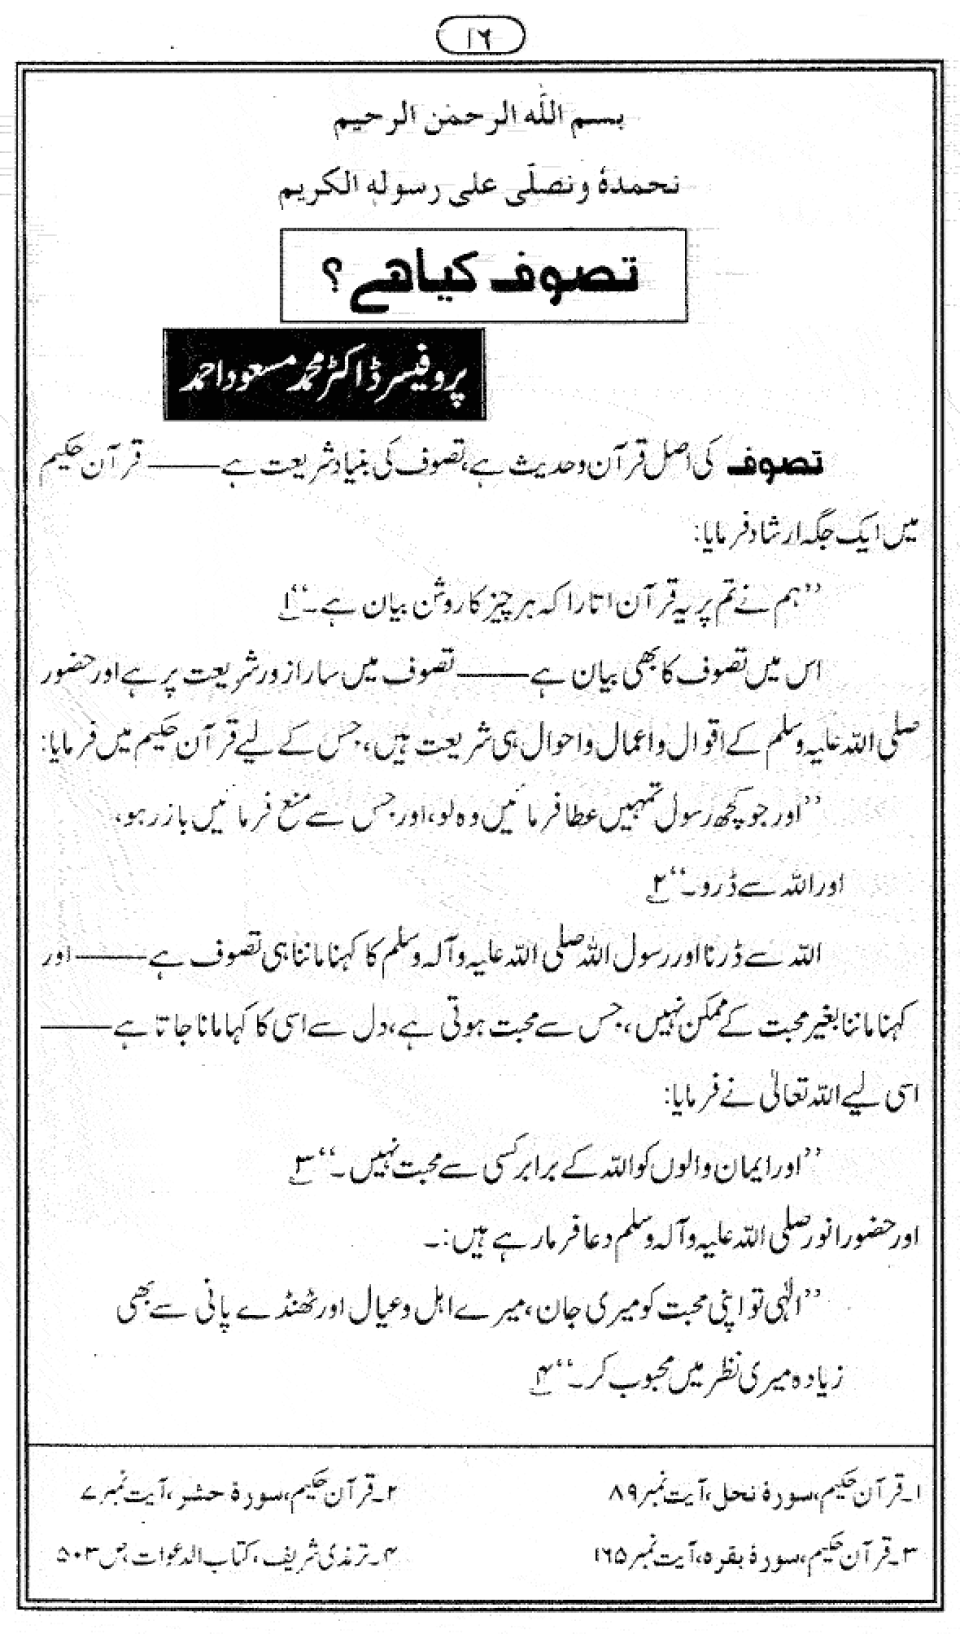 ۱۶
بسم اللّٰہ الرحمٰن الرحیم
نحمدہٗ ونصلّی علی رسولہٖ الکریم
تصوف کیا ھے؟
پروفیسر ڈاکٹر محمد مسعود احمد
تصوف کی اصل قرآن وحدیث ہے، تصوف کی بنیاد شریعت ہے —— قرآن حکیم
میں ایک جگہ ارشاد فرمایا:
’’ہم نے تم پر یہ قرآن اتارا کہ ہر چیز کا روشن بیان ہے۔‘‘۱
اس میں تصوف کا بھی بیان ہے —— تصوف میں سارا زور شریعت پر ہے اور حضور
صلی اللہ علیہ وسلم کے اقوال واعمال واحوال ہی شریعت ہیں، جس کے لیے قرآن حکیم میں فرمایا:
’’اور جو کچھ رسول تمہیں عطا فرمائیں وہ لو، اور جس سے منع فرمائیں باز رہو،
اور اللہ سے ڈرو۔‘‘۲
اللہ سے ڈرنا اور رسول اللہ صلی اللہ علیہ وآلہ وسلم کا کہنا ماننا ہی تصوف ہے —— اور
کہنا ماننا بغیر محبت کے ممکن نہیں، جس سے محبت ہوتی ہے، دل سے اسی کا کہا مانا جاتا ہے ——
اسی لیے اللہ تعالیٰ نے فرمایا:
’’اور ایمان والوں کو اللہ کے برابر کسی سے محبت نہیں۔‘‘۳
اور حضور انور صلی اللہ علیہ وآلہ وسلم دعا فرما رہے ہیں:۔
’’الٰہی تو اپنی محبت کو میری جان، میرے اہل وعیال اور ٹھنڈے پانی سے بھی
زیادہ میری نظر میں محبوب کر۔‘‘۴
۱۔ قرآن حکیم، سورۂ نحل، آیت نمبر ۸۹
۲۔ قرآن حکیم، سورۂ حشر، آیت نمبر ۷
۳۔ قرآن حکیم، سورۂ بقرہ، آیت نمبر ۱۶۵
۴۔ ترمذی شریف، کتاب الدعوات، ص ۵۰۳